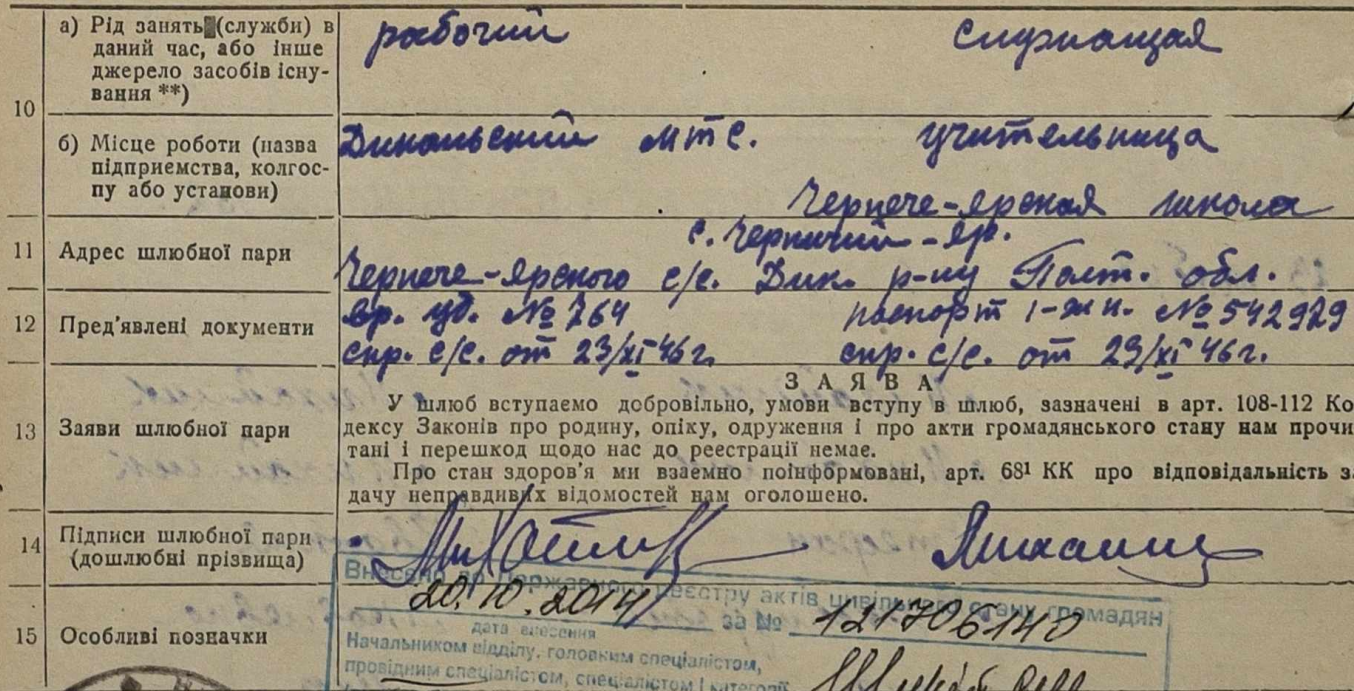 10
а) Рід занять (служби) в
даний час, або інше
джерело засобів існу-
вання **)
рабочий
служащая
б) Місце роботи (назва
підприємства, колгос-
пу або установи)
Диканьский МТС.
учительница
Чернече-Ярская школа
11
Адрес шлюбної пари
с. Чернечий-Яр.
Чернече-Ярского с/с. Дик. р-ну Полт. обл.
12
Пред'явлені документи
вр. уд. № 764
паспорт 1-жн. № 542929
спр. с/с. от 23/XI 46г.
спр. с/с. от 23/XI 46г.
ЗАЯВА
13
Заяви шлюбної пари
У шлюб вступаємо добровільно, умови вступу в шлюб, зазначені в арт. 108-112 Ко
дексу Законів про родину, опіку, одруження і про акти громадянського стану нам прочи
тані і перешкод щодо нас до реєстрації немає.
Про стан здоров'я ми взаємно поінформовані, арт. 68¹ КК про відповідальність за
дачу неправдивих відомостей нам оголошено.
14
Підписи шлюбної пари
(дошлюбні прізвища)
15
Особливі позначки
Внесено до Державного реєстру актів цивільного стану громадян
20.10.2014 за № 121706140
дата внесення
Начальником відділу, головним спеціалістом,
провідним спеціалістом, спеціалістом I категорії